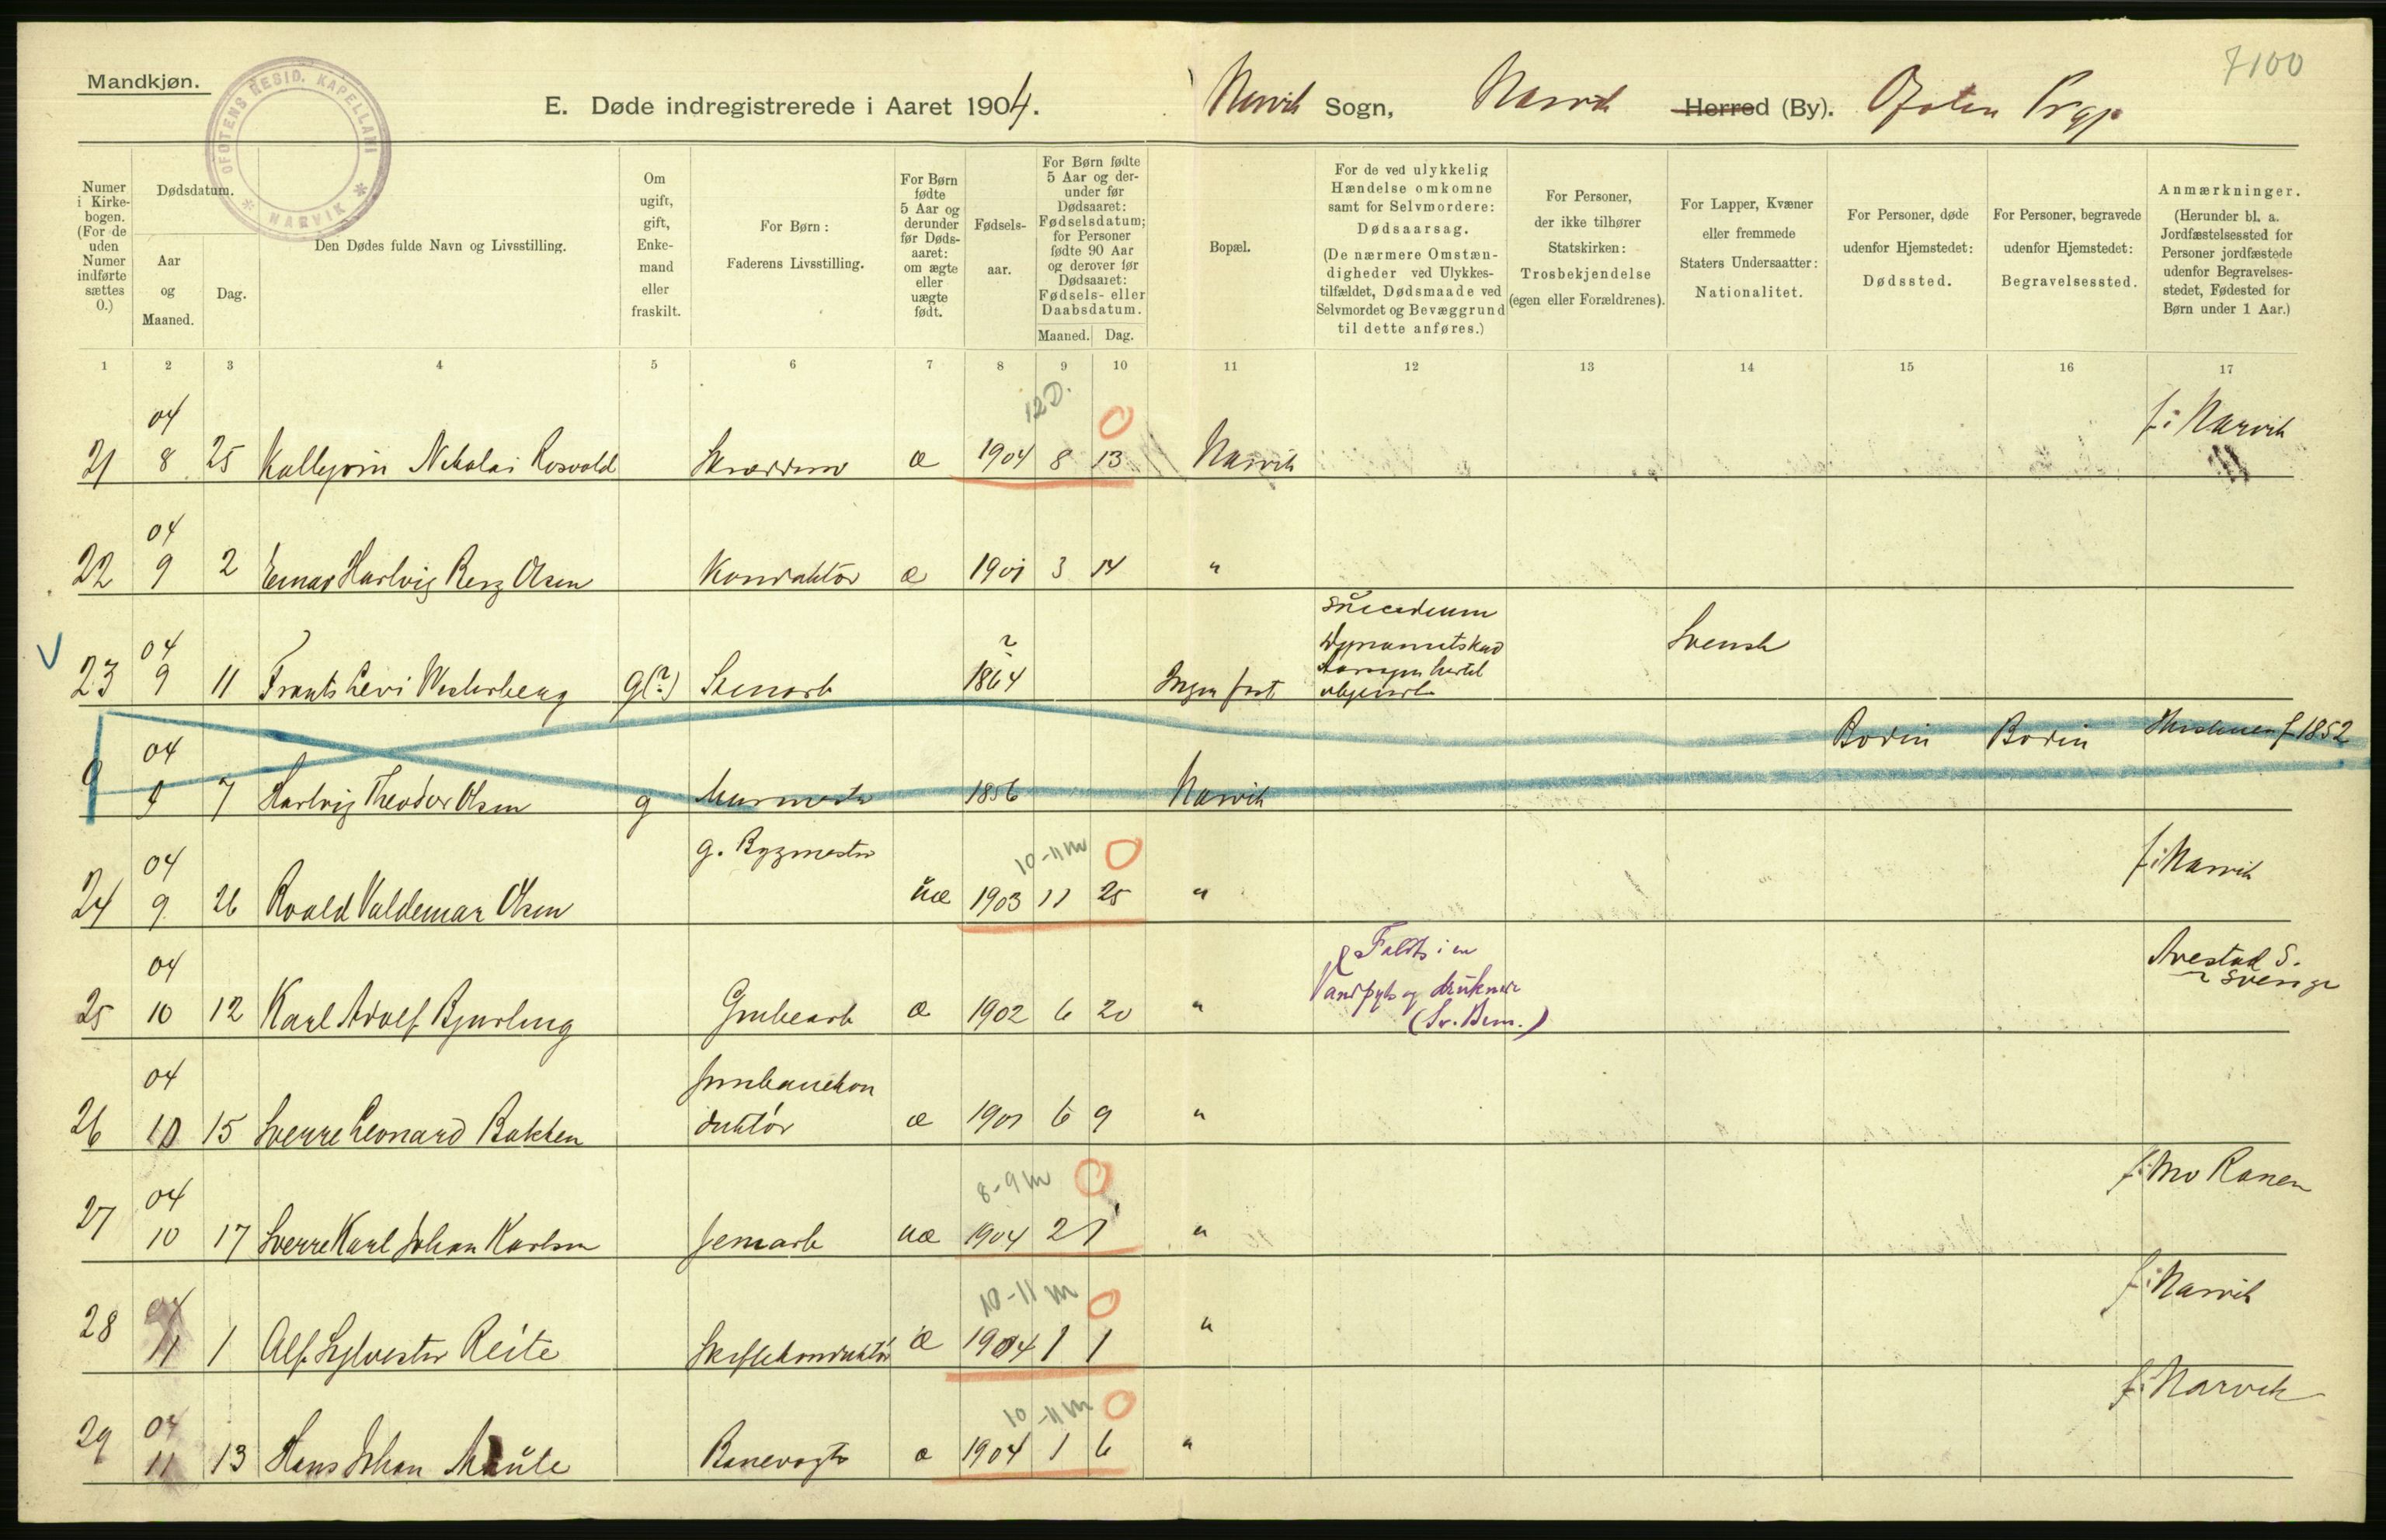 Mandkjøn.
OFOTENS RESID. KAPELLANI * NARVIK *
7100
E. Døde indregistrerede i Aaret 1904. Narvik Sogn, Narvik Herred (By). Ofoten Prgj.
Numer i Kirkebogen. (For de uden Numer indførte sættes 0.)
Dødsdatum.
Aar og Maaned.
Dag.
Den Dødes fulde Navn og Livsstilling.
Om ugift, gift, Enkemand eller fraskilt.
For Børn: Faderens Livsstilling.
For Børn fødte 5 Aar og derunder før Dødsaaret: om ægte eller uægte født.
Fødselsaar.
For Børn fødte 5 Aar og derunder før Dødsaaret: Fødselsdatum; for Personer fødte 90 Aar og derover før Dødsaaret: Fødsels- eller Daabsdatum.
Maaned. Dag.
Bopæl.
For de ved ulykkelig Hændelse omkomne samt for Selvmordere: Dødsaarsag. (De nærmere Omstændigheder ved Ulykkestilfældet, Dødsmaade ved Selvmordet og Bevæggrund til dette anføres.)
For Personer, der ikke tilhører Statskirken: Trosbekjendelse (egen eller Forældrenes).
For Lapper, Kvæner eller fremmede Staters Undersaatter: Nationalitet.
For Personer, døde udenfor Hjemstedet: Dødssted.
For Personer, begravede udenfor Hjemstedet: Begravelsessted.
Anmærkninger. (Herunder bl. a. Jordfæstelsessted for Personer jordfæstede udenfor Begravelsesstedet, Fødested for Børn under 1 Aar.)
1 2 3 4 5 6 7 8 9 10 11 12 13 14 15 16 17
04 12 D. 0 f: Narvik
21 8 25 Nikolai Rosvold æ 1904 8 13 Narvik
04
22 9 2 Einar Hartvig Berg Olsen Konduktør æ 1901 3 14 "
04 ? Svensk
23 9 11 Frants Levi Westerberg g(?) Stenarb 1864 Ingen fast
04 Bodin Bodin f 1852
9 7 Hartvig Theodor Olsen g Murmester 1856 Narvik
04 g. Bygmester 10-11 m 0 f: Narvik
24 9 26 Roald Valdemar Olsen uæ 1903 11 25 "
04 Faldt i en Avestad S.
Sverige
25 10 12 Karl Adolf Bjurling Grubearb æ 1902 6 20 " og druknede
(Sv. Bem.)
04 Jernbanekon
26 10 15 Sverre Leonard Bakken duktør æ 1901 6 9 "
04 8-9 m 0 f: Mo Ranen
27 10 17 Sverre Karl Johan Karlsen Jernarb uæ 1904 2 1 "
04 10-11 m 0 f: Narvik
28 11 1 Alf Sylvester Reite Skiftekonduktør æ 1904 1 1 "
04 10-11 m 0 f: Narvik
29 11 13 Hans Johan Banevogter æ 1904 1 6 "